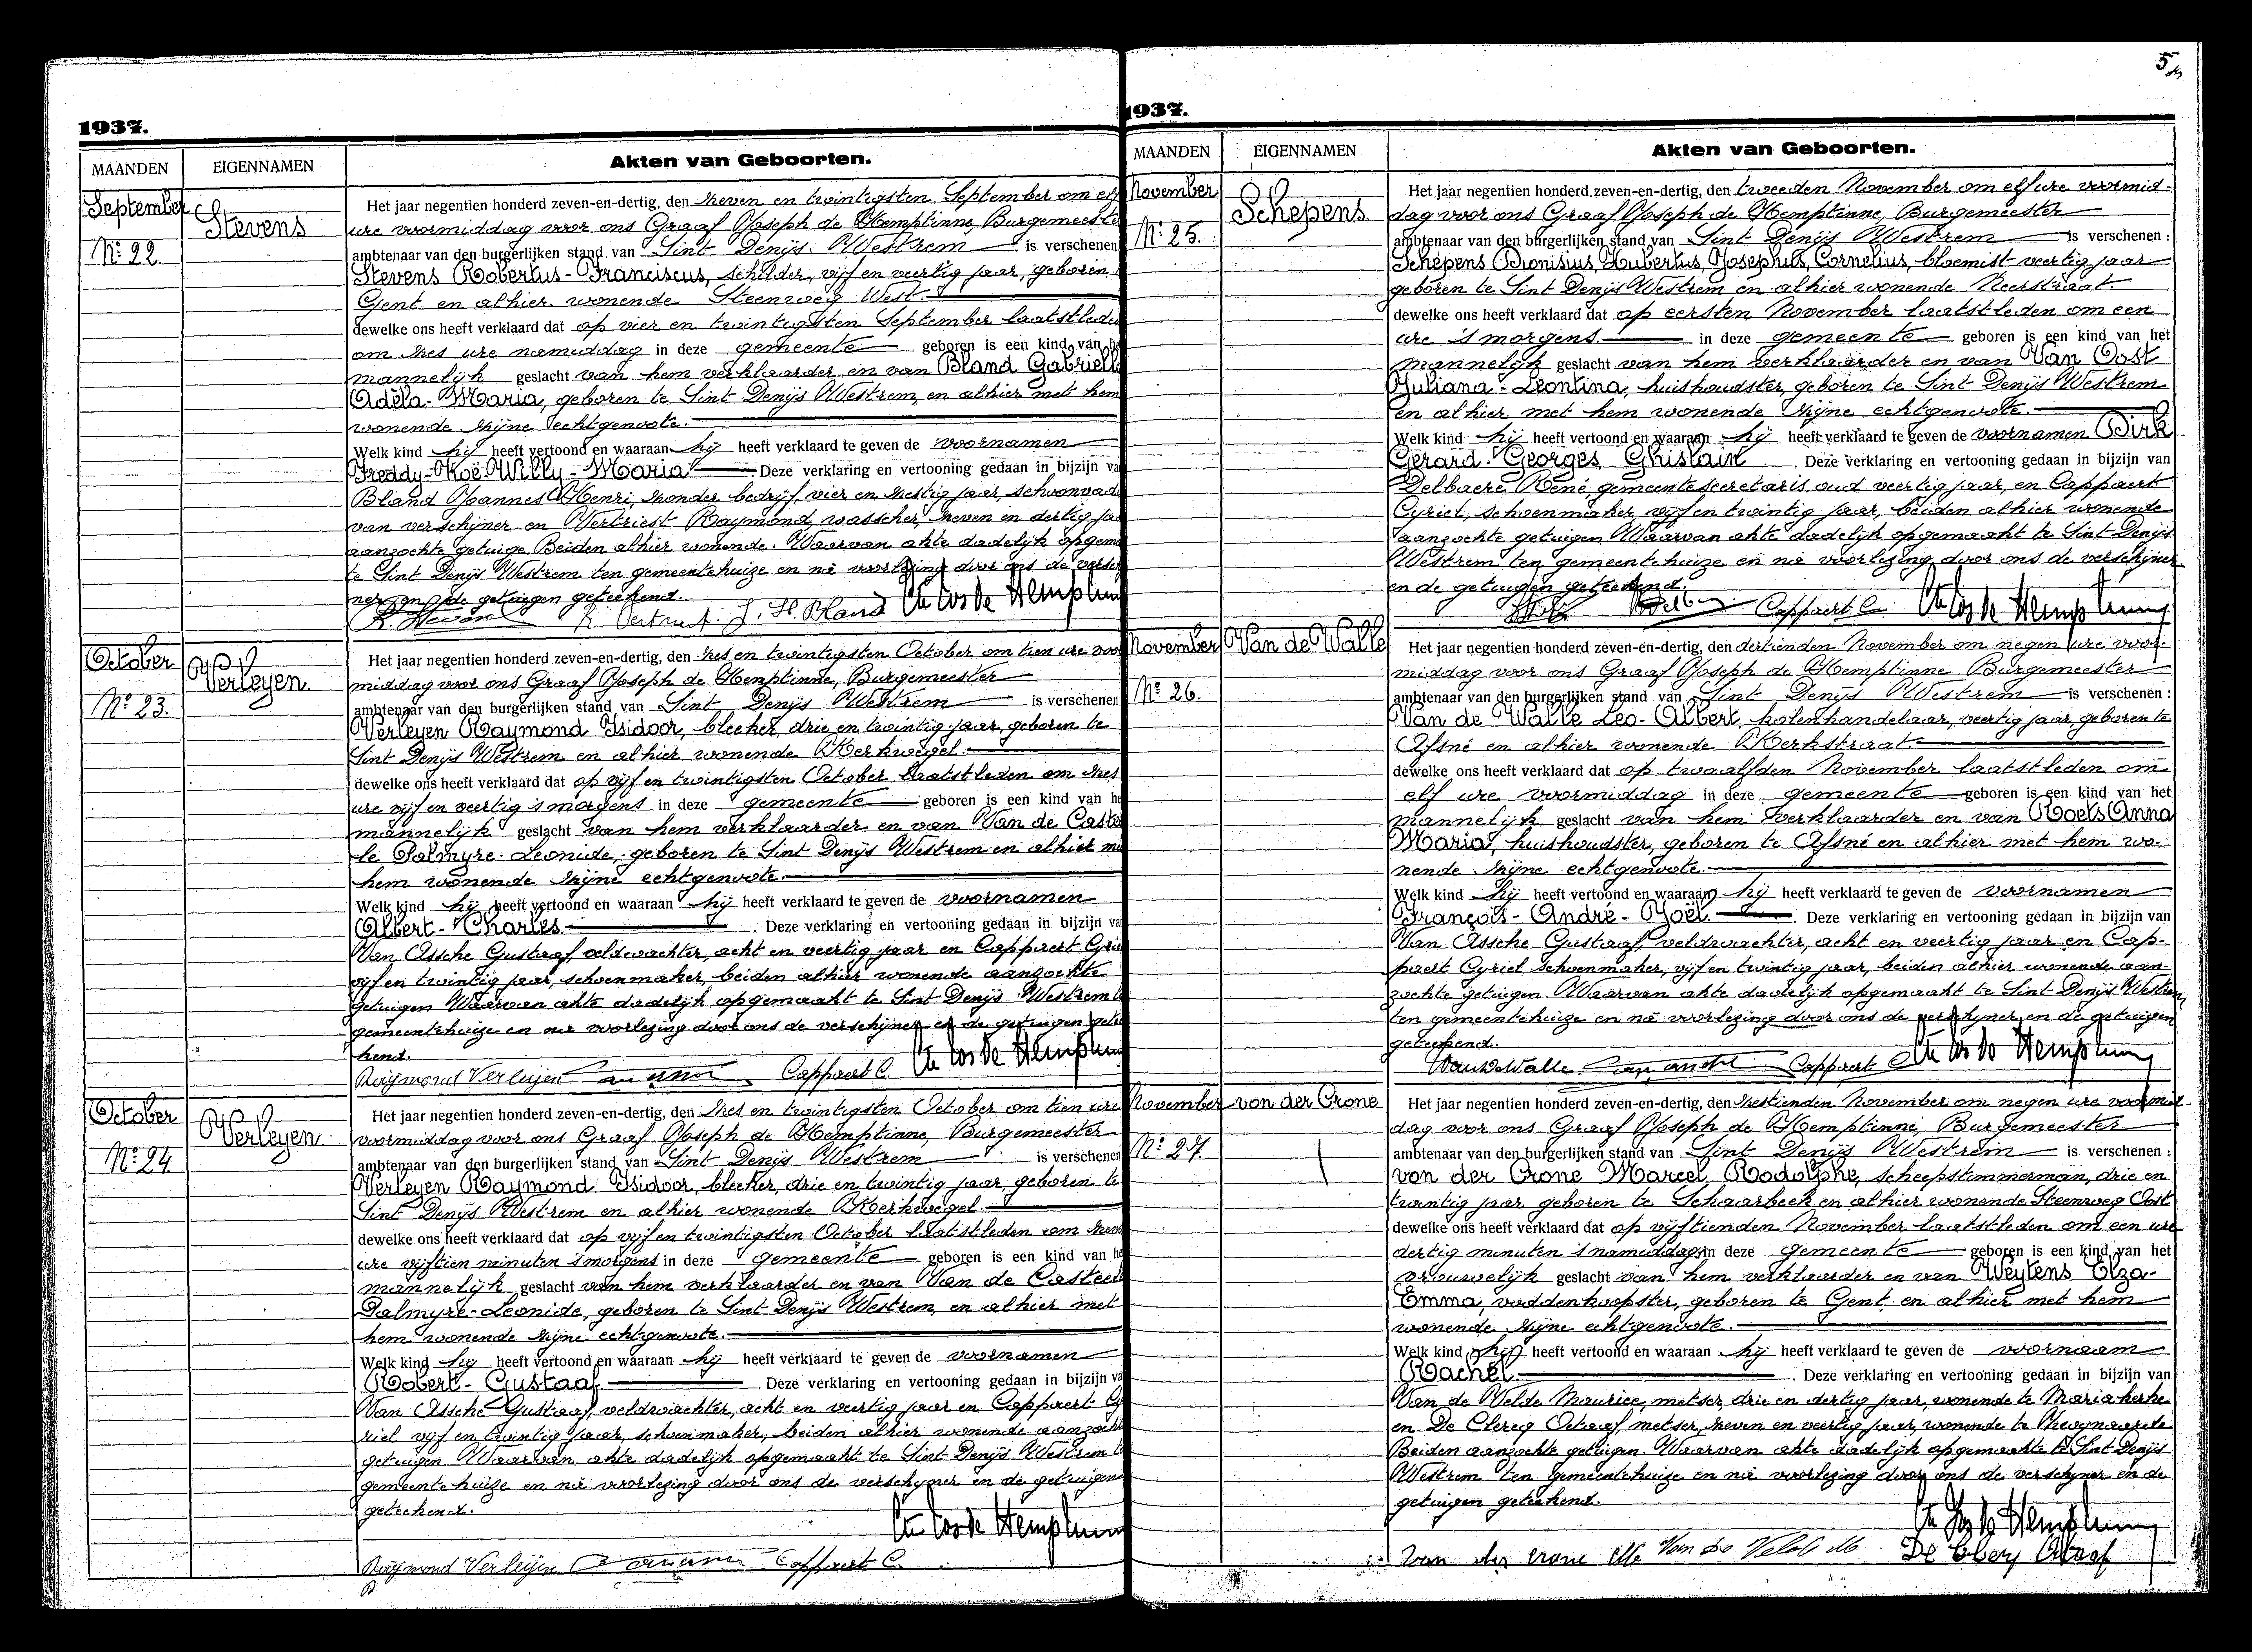 5
1937.
MAANDEN
EIGENNAMEN
Akten van Geboorten.
September
Stevens
Nº 22.
Het jaar negentien honderd zeven-en-dertig, den zeven en twintigsten September om elf
ure voormiddag voor ons Graaf Joseph de Hemptinne, Burgemeeste
ambtenaar van den burgerlijken stand van Sint Denijs Westrem is verschenen
Stevens Robertus-Franciscus, schilder, vijf en veertig jaar, geboren
Gent en alhier wonende Steenweg West.
dewelke ons heeft verklaard dat op vier en twintigsten September laatstlede
om zes ure namiddag in deze gemeente geboren is een kind van he
mannelijk geslacht van hem verklaarder en van Bland Gabriell
Adela-Maria, geboren te Sint Denijs Westrem, en alhier met hem
wonende zijne echtgenoote.
Welk kind hij heeft vertoond en waaraan hij heeft verklaard te geven de voornamen
Freddy-Noë-Willy-Maria Deze verklaring en vertooning gedaan in bijzijn va
Bland Joannes Henri, zonder bedrijf, vier en zestig jaar, schoonvad
van verschijner en Vertriest Raymond, wasscher, zeven en dertig ja
aanzochte getuige. Beiden alhier wonende. Waarvan akte dadelijk opgem
te Sint Denijs Westrem ten gemeentehuize en na voorlezing door ons de versch
ner en de getuigen geteekend.
R. Steven R. Vertriest. J. H. Bland Cte Jos de Hemptinn
October
Verleyen.
Nº 23.
Het jaar negentien honderd zeven-en-dertig, den zes en twintigsten October om tien ure voo
middag voor ons Graaf Joseph de Hemptinne, Burgemeester
ambtenaar van den burgerlijken stand van Sint Denijs Westrem is verschenen
Verleyen Raymond Isidoor, bleeker, drie en twintig jaar, geboren te
Sint Denijs Westrem en alhier wonende Kerkwegel.
dewelke ons heeft verklaard dat op vijf en twintigsten October laatstleden om zes
ure vijf en veertig 's morgens in deze gemeente geboren is een kind van he
mannelijk geslacht van hem verklaarder en van Van de Castee
le Palmyre-Leonide, geboren te Sint Denijs Westrem en alhier me
hem wonende zijne echtgenoote.
Welk kind hij heeft vertoond en waaraan hij heeft verklaard te geven de voornamen
Albert-Charles. Deze verklaring en vertooning gedaan in bijzijn va
Van Assche Gustaaf, veldwachter, acht en veertig jaar en Cappaert Cyrie
vijf en twintig jaar, schoenmaker, beiden alhier wonende aanzochte
getuigen Waarvan akte dadelijk opgemaakt te Sint Denijs Westrem te
gemeentehuize en na voorlezing door ons de verschijner en de getuigen getee
kend.
Raymond Verleijen Cappaert C. Cte Jos de Hemptinn
October
Verleyen
Nº 24
Het jaar negentien honderd zeven-en-dertig, den zes en twintigsten October om tien ure
voormiddag voor ons Graaf Joseph de Hemptinne, Burgemeester
ambtenaar van den burgerlijken stand van Sint Denijs Westrem is verschenen
Verleyen Raymond Isidoor, bleeker, drie en twintig jaar, geboren te
Sint Denijs Westrem en alhier wonende Kerkwegel.
dewelke ons heeft verklaard dat op vijf en twintigsten October laatstleden om zeve
ure vijftien minuten 's morgens in deze gemeente geboren is een kind van he
mannelijk geslacht van hem verklaarder en van Van de Casteele
Palmyre-Leonide, geboren te Sint Denijs Westrem, en alhier met
hem wonende zijne echtgenoote.
Welk kind hij heeft vertoond en waaraan hij heeft verklaard te geven de voornamen
Robert-Gustaaf. Deze verklaring en vertooning gedaan in bijzijn va
Van Assche Gustaaf, veldwachter, acht en veertig jaar en Cappaert Cy
riel vijf en twintig jaar, schoenmaker, beiden alhier wonende aanzoch
getuigen Waarvan akte dadelijk opgemaakt te Sint Denijs Westrem te
gemeentehuize en na voorlezing door ons de verschijner en de getuigen
geteekend.
Cte Jos de Hemptinn
Raymond Verleijen Cappaert C.
1937.
MAANDEN
EIGENNAMEN
Akten van Geboorten.
November
Schepens.
Nº 25.
Het jaar negentien honderd zeven-en-dertig, den tweeden November om elf ure voormid-
dag voor ons Graaf Joseph de Hemptinne, Burgemeester
ambtenaar van den burgerlijken stand van Sint Denijs Westrem is verschenen :
Schepens Dionisius, Hubertus, Josephus, Cornelius, bloemist veertig jaar
geboren te Sint Denijs Westrem en alhier wonende Neerstraat.
dewelke ons heeft verklaard dat op eersten November laatstleden om een
ure 's morgens. in deze gemeente geboren is een kind van het
mannelijk geslacht van hem verklaarder en van Van Oost
Juliana-Leontina, huishoudster, geboren te Sint Denijs Westrem
en alhier met hem wonende zijne echtgenoote.
Welk kind hij heeft vertoond en waaraan hij heeft verklaard te geven de voornamen Dirk
Gerard-Georges Ghislain. Deze verklaring en vertooning gedaan in bijzijn van
Delbaere René gemeentesecretaris oud veertig jaar, en Cappaert
Cyriel, schoenmaker, vijf en twintig jaar, beiden alhier wonende
aanzochte getuigen Waarvan akte dadelijk opgemaakt te Sint Denijs
Westrem ten gemeentehuize en na voorlezing door ons de verschijner
en de getuigen geteekend.
Cappaert C Cte Jos de Hemptinne
November
Van de Walle
Nº 26.
Het jaar negentien honderd zeven-en-dertig, den dertienden November om negen ure voor-
middag voor ons Graaf Joseph de Hemptinne Burgemeester
ambtenaar van den burgerlijken stand van Sint Denijs Westrem is verschenen :
Van de Walle Leo-Albert, kolenhandelaar, veertig jaar, geboren te
Afsné en alhier wonende Kerkstraat.
dewelke ons heeft verklaard dat op twaalfden November laatstleden om
elf ure voormiddag in deze gemeente geboren is een kind van het
mannelijk geslacht van hem verklaarder en van Roels Anna
Maria, huishoudster, geboren te Afsné en alhier met hem wo-
nende zijne echtgenoote.
Welk kind hij heeft vertoond en waaraan hij heeft verklaard te geven de voornamen
François-André-Joël. Deze verklaring en vertooning gedaan in bijzijn van
Van Assche Gustaaf, veldwachter, acht en veertig jaar en Cap-
paert Cyriel schoenmaker, vijf en twintig jaar, beiden alhier wonende aan-
zochte getuigen. Waarvan akte dadelijk opgemaakt te Sint Denijs Westrem
ten gemeentehuize en na voorlezing door ons de verschijner en de getuigen
geteekend.
Van de Walle Cappaert C Cte Jos de Hemptinne
November
von der Crone
Nº 27.
Het jaar negentien honderd zeven-en-dertig, den zestienden November om negen ure voormid-
dag voor ons Graaf Joseph de Hemptinne, Burgemeester
ambtenaar van den burgerlijken stand van Sint Denijs Westrem is verschenen :
von der Crone Marcel Rodolphe, scheepstimmerman, drie en
twintig jaar geboren te Schaarbeek en alhier wonende Steenweg Oost
dewelke ons heeft verklaard dat op vijftienden November laatstleden om een ure
dertig minuten 's namiddags in deze gemeente geboren is een kind van het
vrouwelijk geslacht van hem verklaarder en van Weytens Elza-
Emma, voddenkoopster, geboren te Gent en alhier met hem
wonende zijne echtgenoote.
Welk kind hij heeft vertoond en waaraan hij heeft verklaard te geven de voornaam
Rachel. Deze verklaring en vertooning gedaan in bijzijn van
Van de Velde Maurice, metser, drie en dertig jaar, wonende te Mariakerke
en De Clercq Octaaf, metser, zeven en veertig jaar, wonende te Zwynaarde
Beiden aanzochte getuigen. Waarvan akte dadelijk opgemaakt te Sint Denijs
Westrem ten gemeentehuize en na voorlezing door ons de verschijner en de
getuigen geteekend.
Cte Jos de Hemptinne
Van der Crone Van de Velde De Clercq Octaaf